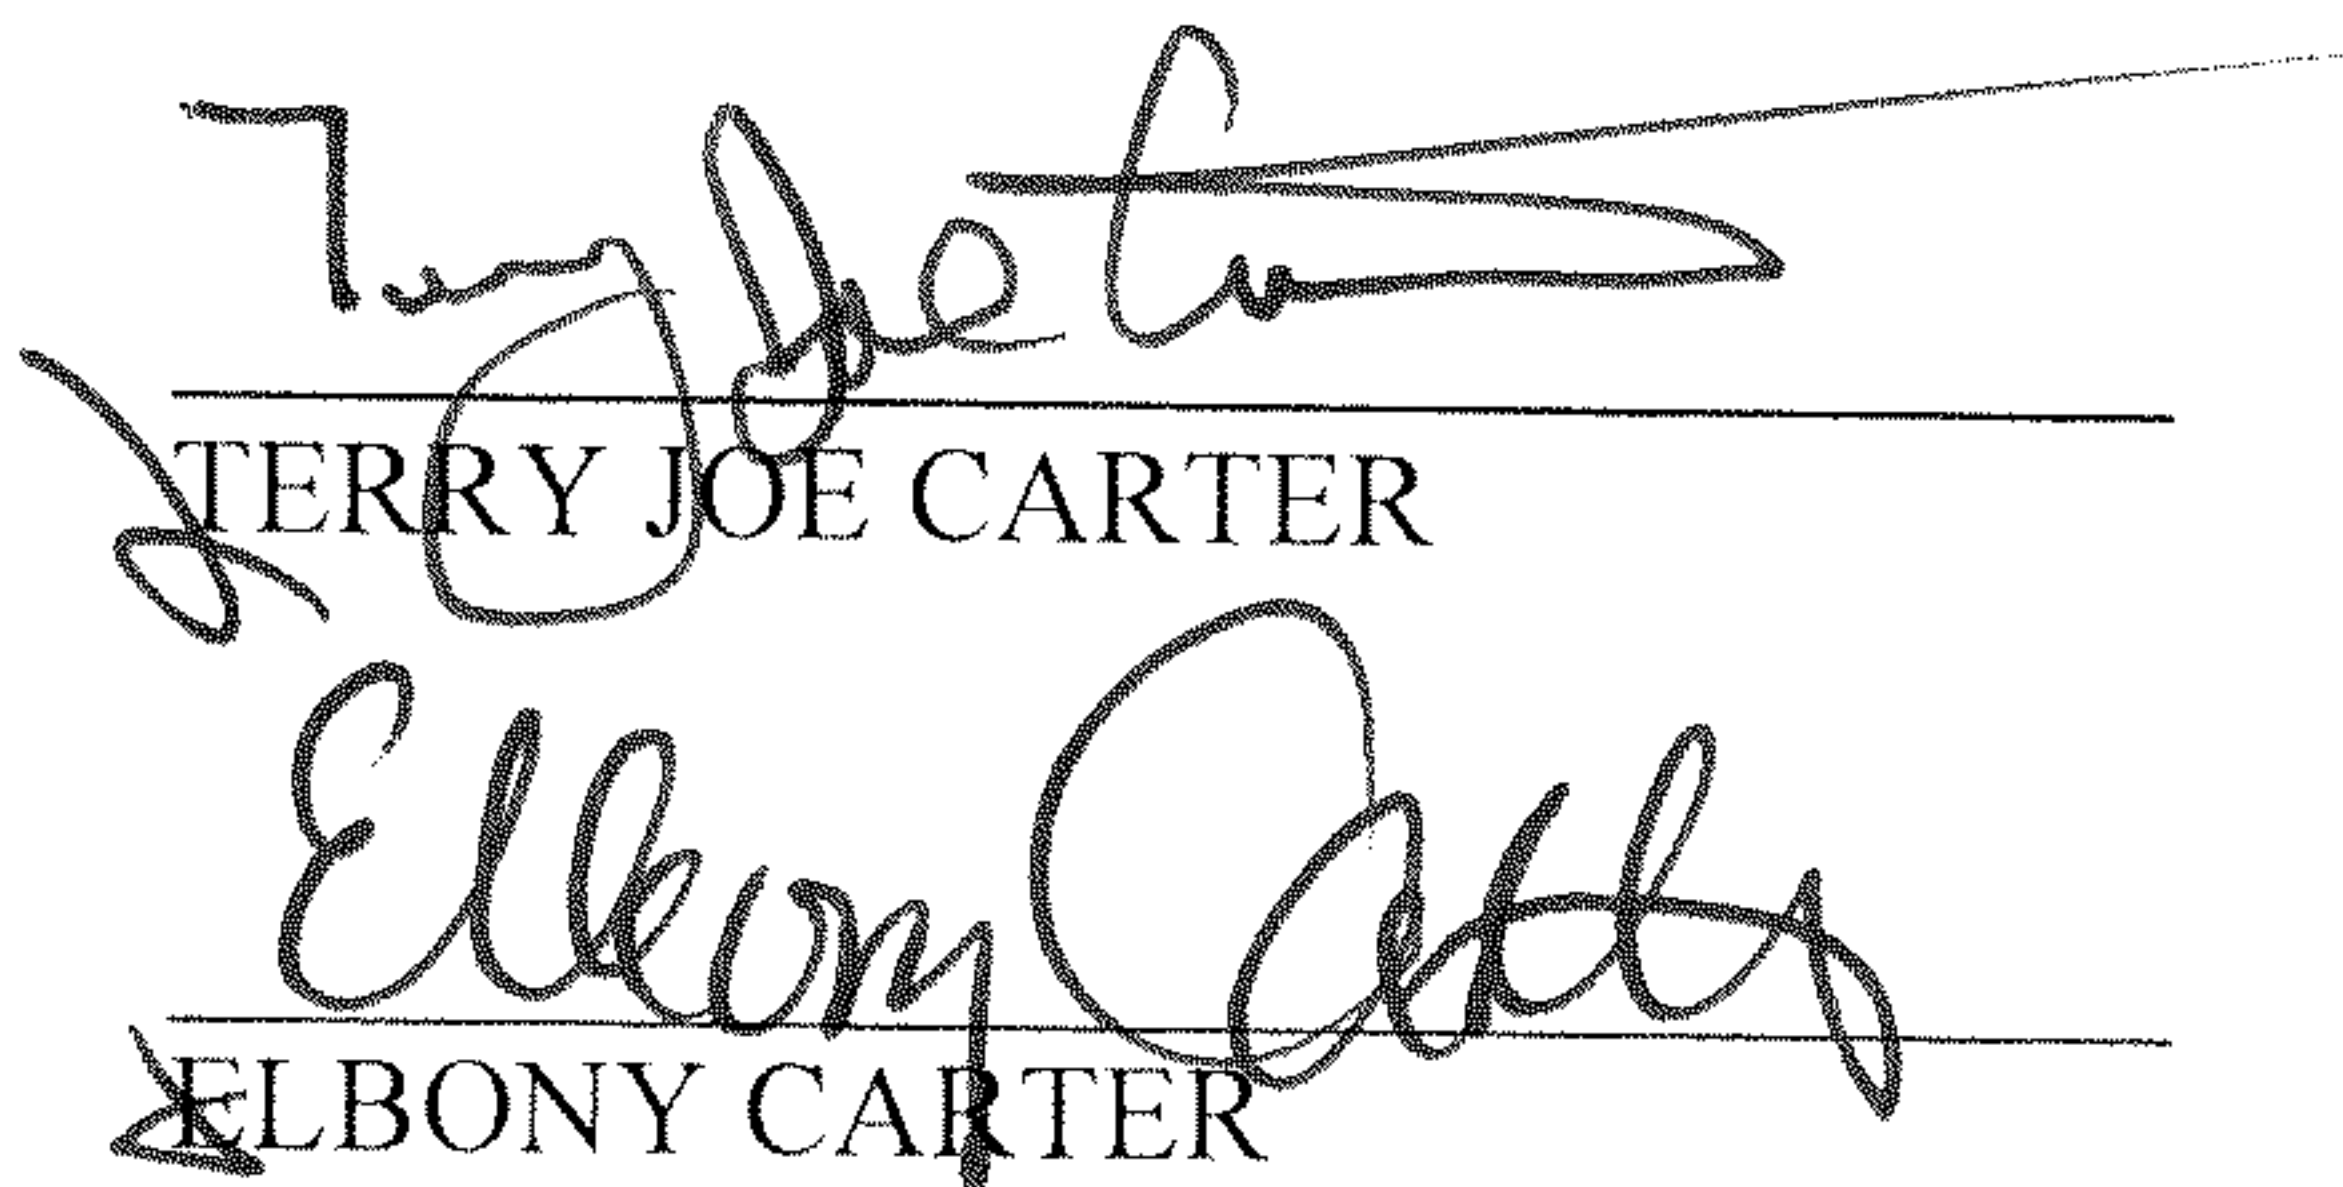 Terry Joe Carter
TERRY JOE CARTER
Elbony Carter
ELBONY CARTER